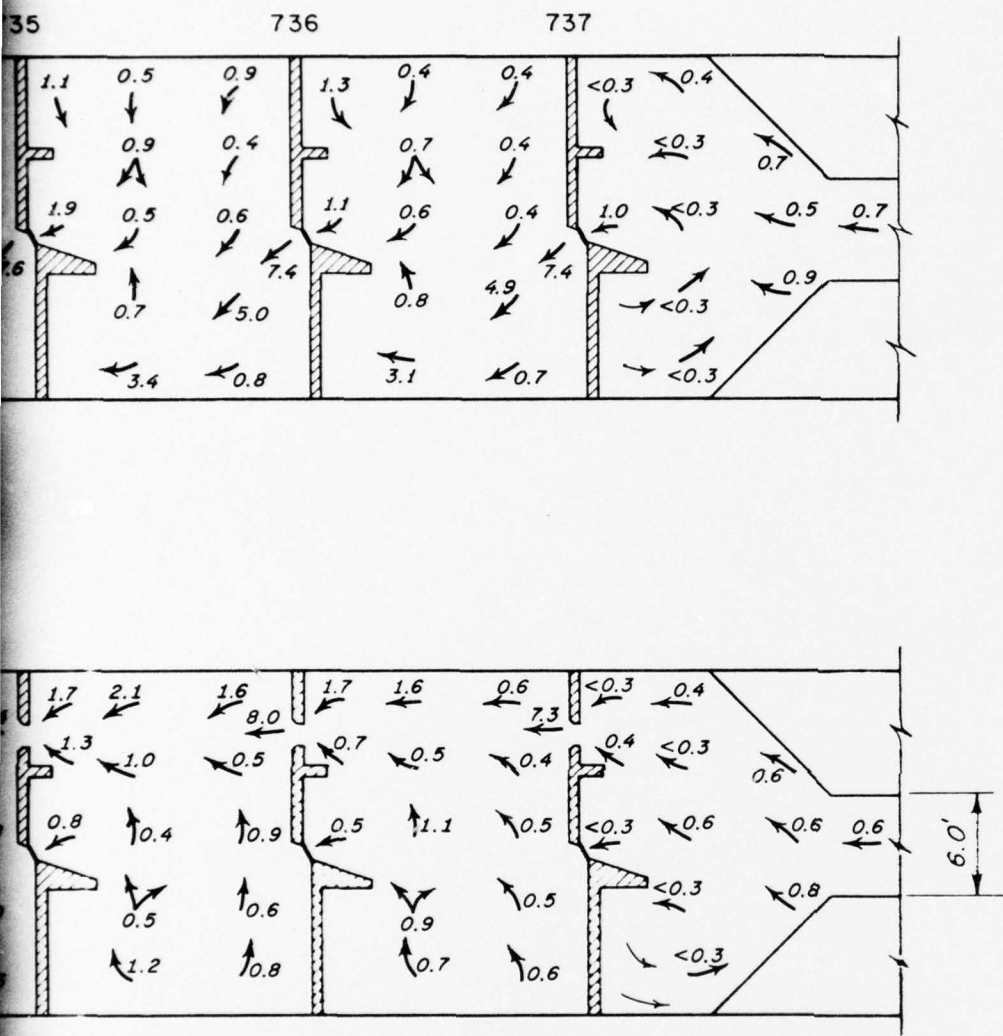 35 736 737
1.1 0.5 0.9 1.3 0.4 0.4 <0.3 0.4
0.9 0.4 0.7 0.4 <0.3 0.7
1.9 0.5 0.6 1.1 0.6 0.4 1.0 <0.3 0.5 0.7
7.6 7.4 7.4
0.7 5.0 0.8 4.9 <0.3 0.9
3.4 0.8 3.1 0.7 <0.3
1.7 2.1 1.6 1.7 1.6 0.6 <0.3 0.4
8.0 7.3
1.3 1.0 0.5 0.7 0.5 0.4 0.4 <0.3 0.6
0.8 0.4 0.9 0.5 1.1 0.5 <0.3 0.6 0.6 0.6
6.0'
0.5 0.6 0.9 0.5 <0.3 0.8
1.2 0.8 0.7 0.6 <0.3